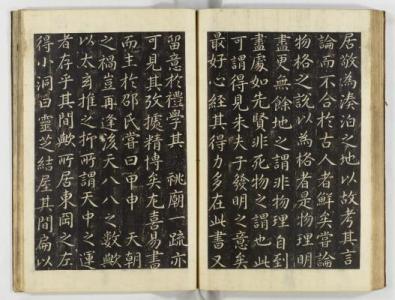 居敬為湊泊之地以故考其言
論而不合於古人者鮮矣嘗論
物格之說以為格者是物理明
盡更無餘地之謂非物理自到
盡處如先賢非死物之謂也此
可謂得見朱夫子發明之意矣
最好心經其得力多在此書又
留意於禮學其祧廟一疏亦
可見其攷據精博矣尤喜易書
而主於邵氏嘗曰甲申天朝
之禍豈再逢後天八之數歟
以太玄推之抑所謂天中之運
者存乎其間歟所居東岡之左
得小洞曰靈芝結屋其間扁以